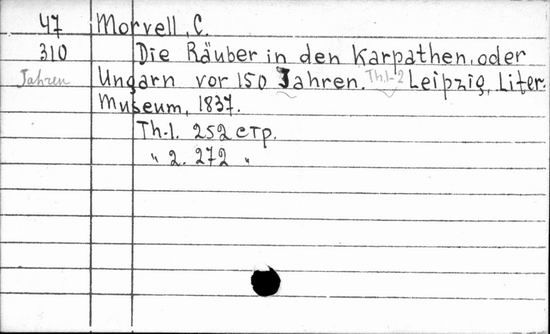 47 Morvell, C.
310 Die Räuber in den Karpathen, oder
Jahren Ungarn vor 150 Jahren. Th.1-2 Leipzig, Liter.
Museum, 1837.
Th.1. 252 стр.
" 2. 272 "